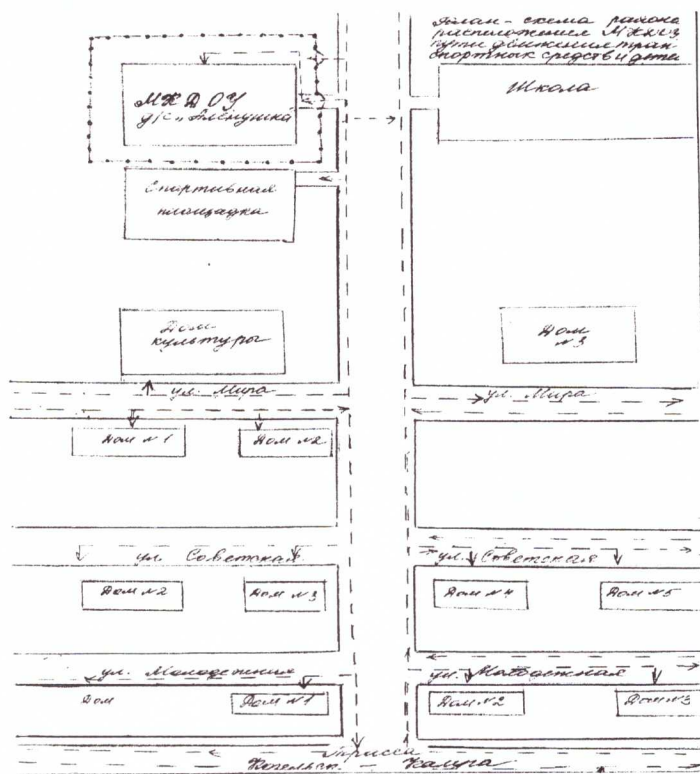 План-схема района
расположения МК
пути движения тран
спортных средств и детей
Школа
МКДОУ
д/с "Алёнушка"
Спортивная
площадка
Дом
культуры
Дом
№3
ул. Мира
ул. Мира
Дом №1
Дом №2
ул. Советская
ул. Советская
Дом №2
Дом №3
Дом №4
Дом №5
ул. Молодежная
ул. Молодежная
Дом
Дом №1
Дом №2
Дом №3
трасса
Козельск - Калуга